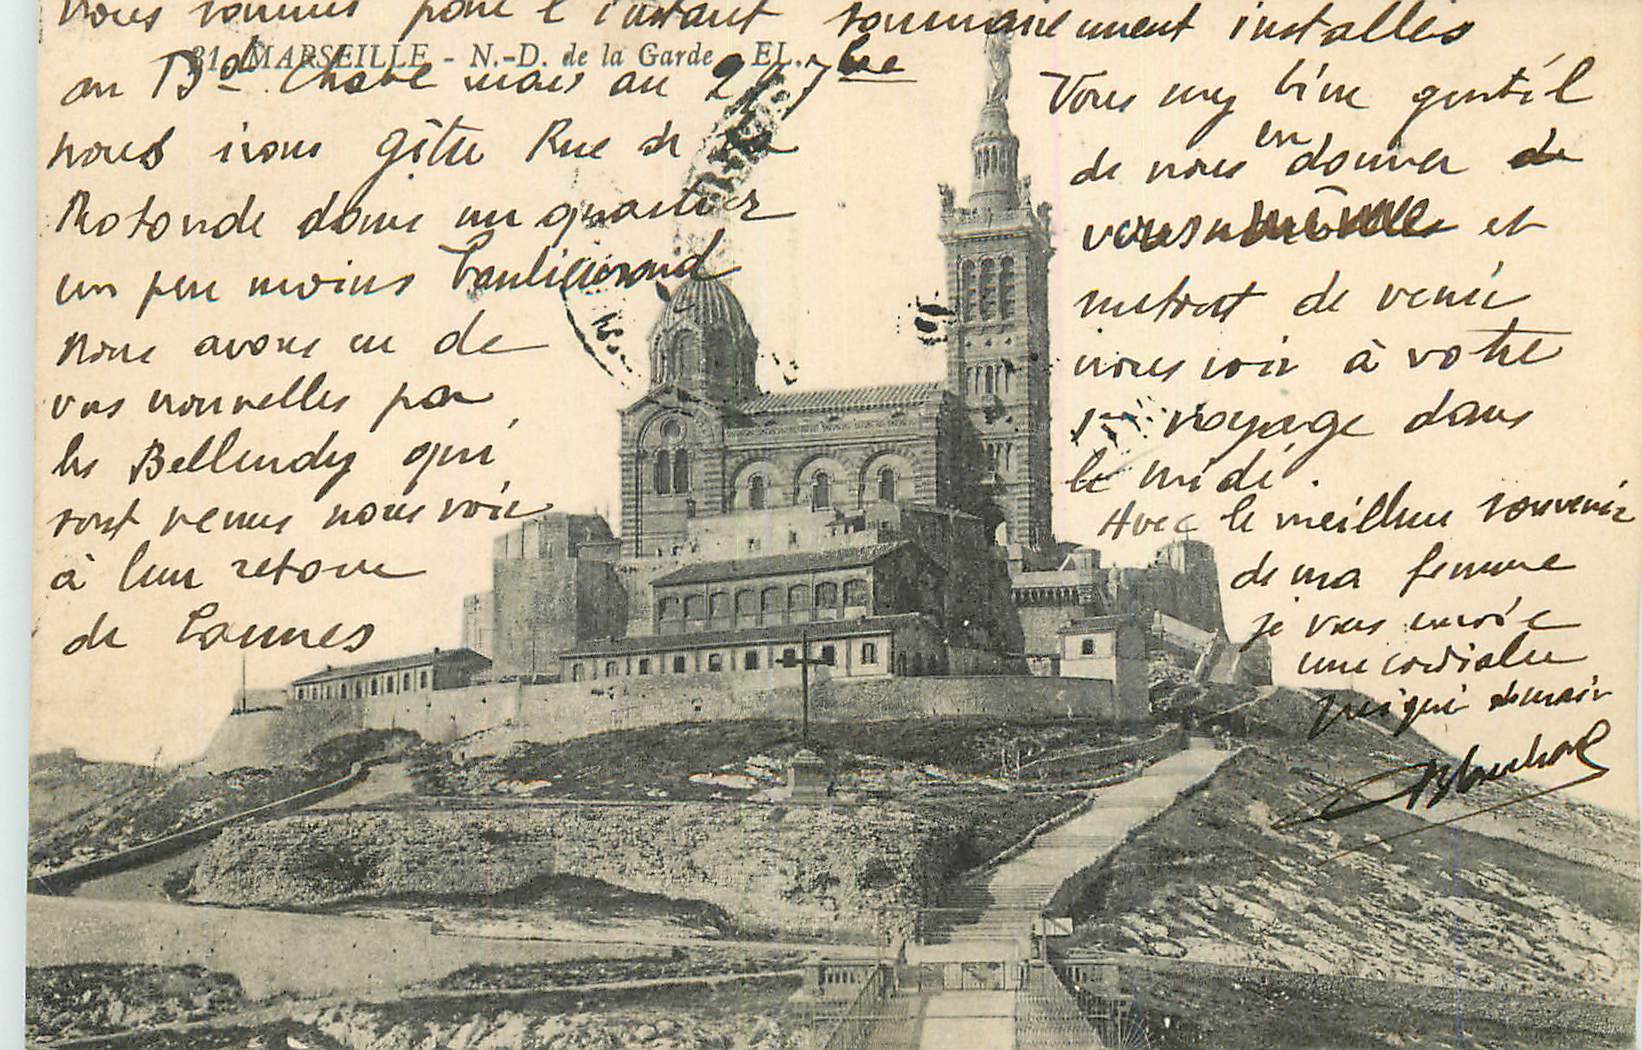 Nous sommes pour l'instant sommairement installés
31. MARSEILLE - N.-D. de la Garde - EL.
au Bd Chave mais au 29 7bre
nous irons gîter Rue de la
Rotonde dans un quartier
un peu moins
nous avons eu de
vos nouvelles par
les Bellendy qui
sont venus nous voir
à leur retour
de Cannes
Vous
gentil
de nous en donner de
et
de venir
nous voir à votre
voyage dans
le midi.
Avec le meilleur souvenir
de ma femme
je vous envoie
une cordiale